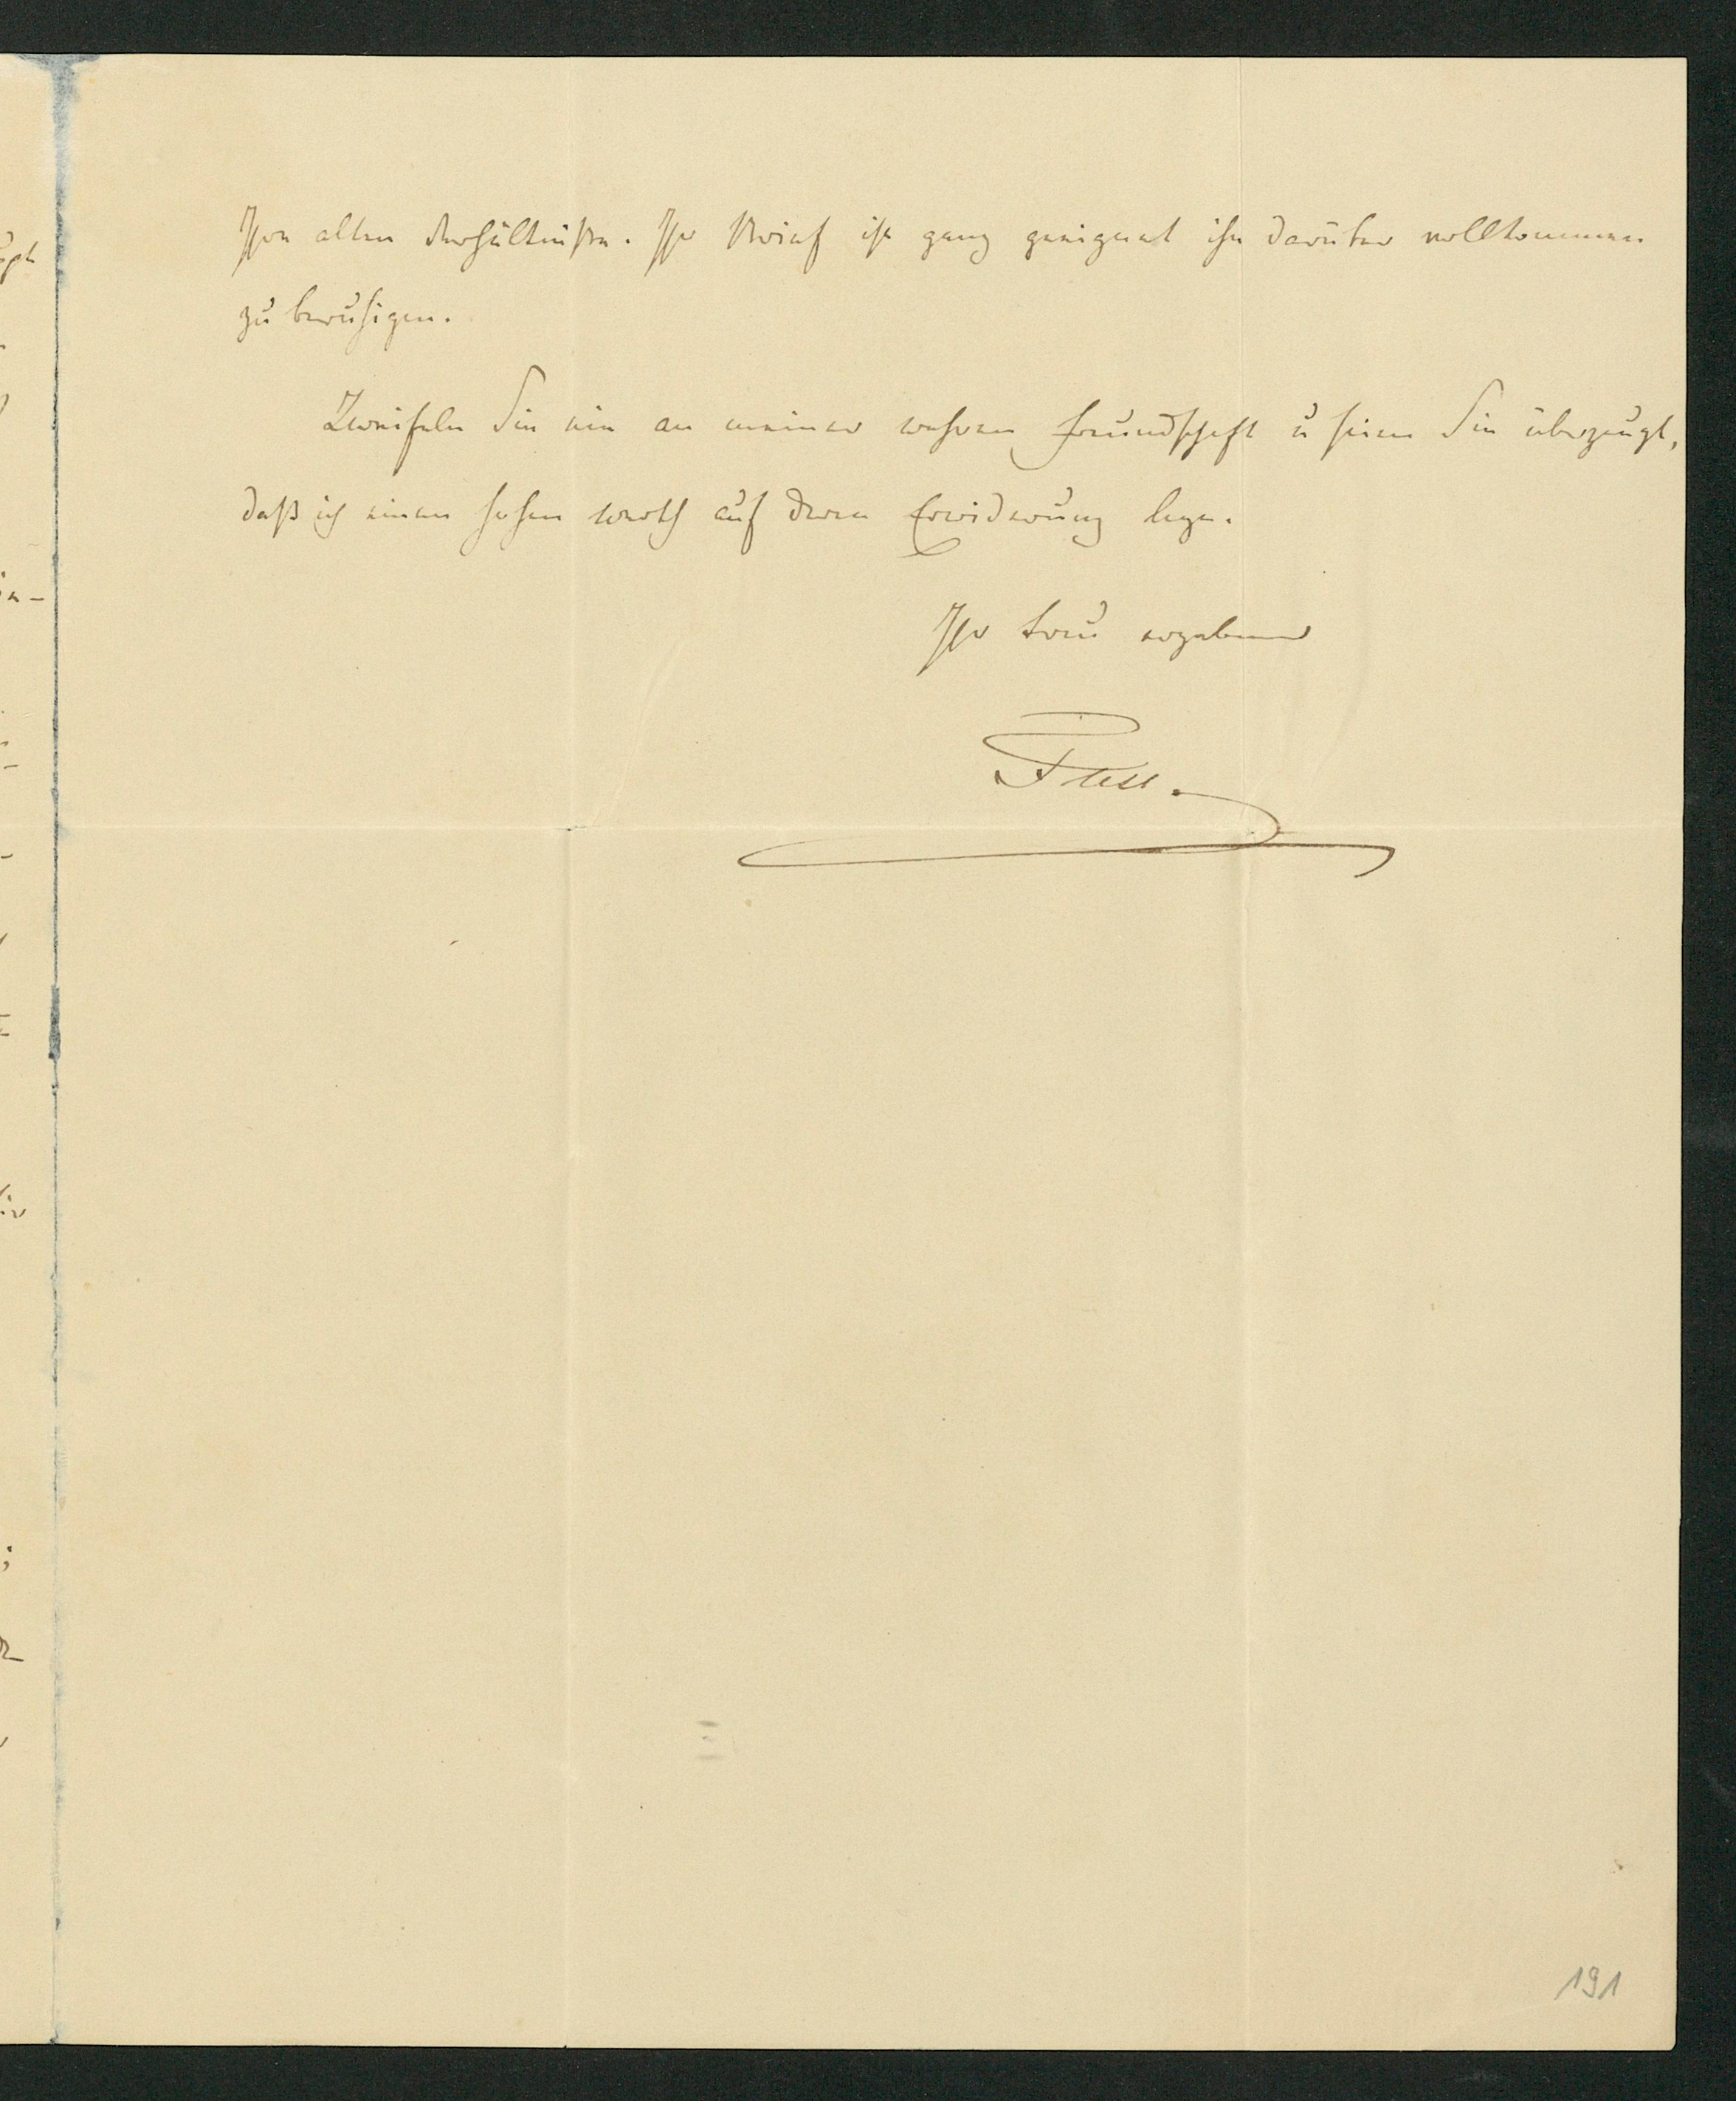 Ihre alten Verhältniße. Ihr Brief ist ganz geeignet ihn darüber vollkommen
zu beruhigen.
Zweifeln Sie nie an meiner wahren Freundschaft u seien Sie überzeugt,
daß ich einen hohen Werth auf deren Erwiderung lege.
Ihr treu ergebener
Fuss.
191